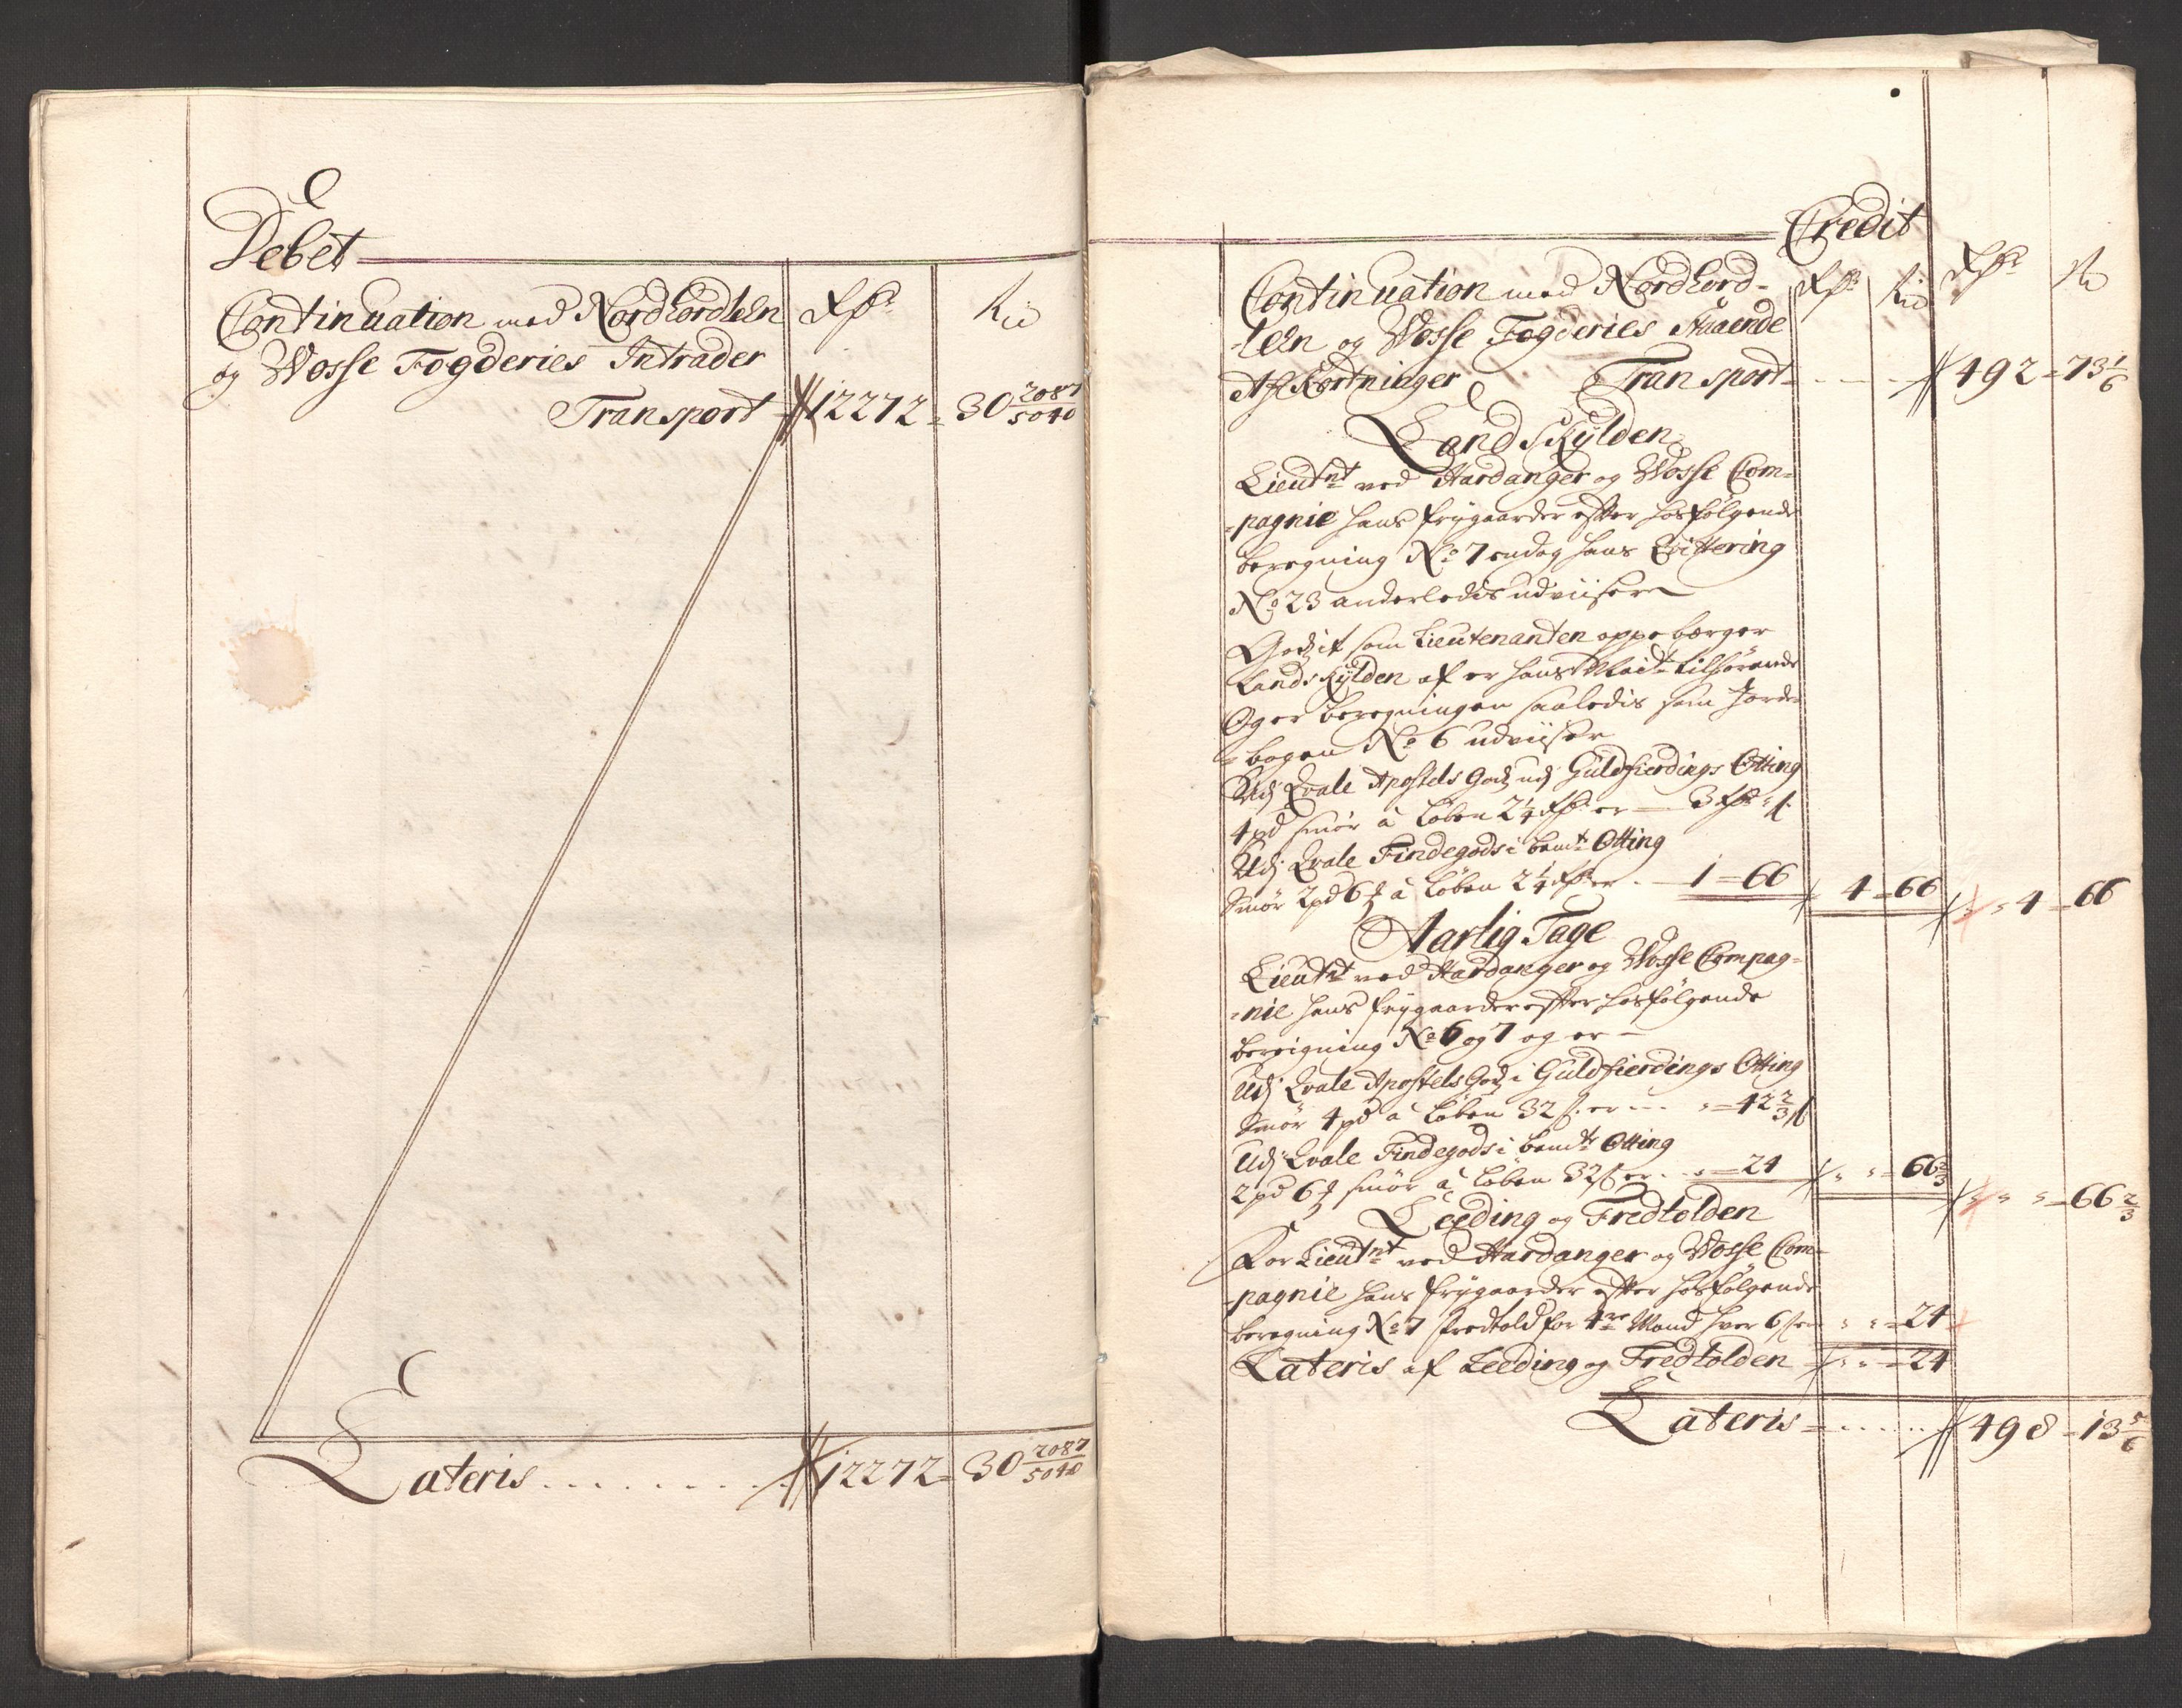 Debet
Continuation med Nordhordlehn
og Wosse Fogderies Intrader
Transport 12272 = 30 2087/5040
Lateris . . . . . . . . 12272 = 30 2087/5040
Credit
Continuation med Nordhord-
-lehn og Wosse Fogderies Staaende
Afkortninger Transport 492 = 73 1/6
Landskylden
Lieutnt ved Hardanger og Wosse Com-
-pagnie hans frygaarder efter hosfølgende
beregning No 7 endog hans Qvittering
No 23 anderledis udviiser
Godzit som Lieutenanten oppebærger
Landskylden af er hans Maits tilhørende
Og er beregningen saaledis som Jorde-
-bogen No 6 udviiser
Udj Qvale Apostels Godz udj Guldfierdings Otting
4 pd smør à Løben 2 1/4 Rdr er — 3 Rdr
Udj Qvale Findegods i bemte Otting
Smør 2 pd 6 à Løben 2 1/4 Rdr er — 1 = 66 4 = 66 4 = 66
Aarlig Tage
Lieutnt ved Hardanger og Wosse Compag-
-nie hans frygaarder efter hosfølgende
bereigning No 6 og 7 og er —
Udj Qvale Apostels Godz i Guldfierdings Otting
Smør 4 pd à Løben 32 s. er — 42 2/3 s
Udj Qvale Findegods i bemte Otting
2 pd 6 smør à Løben 32 s er . = 24 66 2/3 66 2/3
Leeding og Fredtolden
For Lieutnt ved Hardanger og Wosse Com-
-pagnie hans frygaarder efter hosfølgende
beregning No 7 fredtold for 4re Mænd hver 6 s er 24
Lateris af Leeding og Fredtolden 24
Lateris 498 = 13 5/6